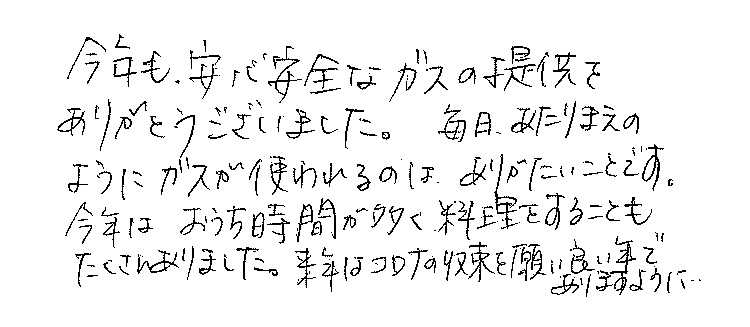 今年も、安心安全なガスの提供を
ありがとうございました。 毎日、あたりまえの
ようにガスが使われるのは、ありがたいことです。
今年は おうち時間が多く料理をすることも
たくさんありました。来年はコロナの収束を願い良い年で
ありますように…